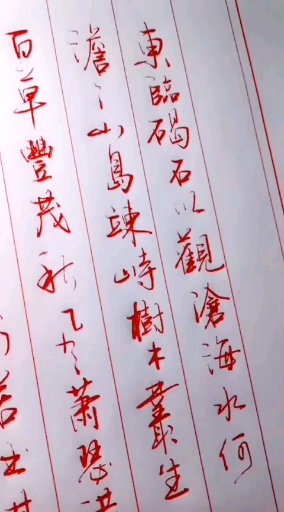 東臨碣石以觀滄海水何
澹〻山島竦峙樹木叢生
百草豐茂秋風蕭瑟洪
若出其